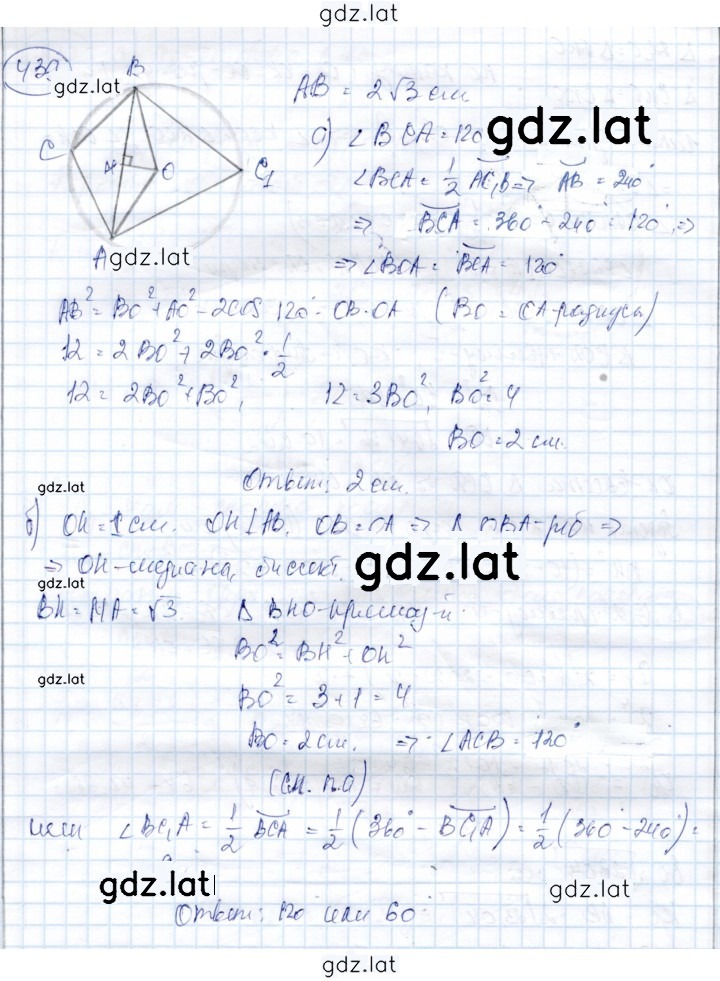 gdz.lat
439
gdz.lat
B
C
H
O
C₁
A
gdz.lat
AB = 2√3 см
а) ∠BCA = 120
gdz.lat
∠BCA = 1/2 AC₁B ⇒ AB = 240°
⇒ BCA = 360° - 240° = 120°, ⇒
⇒ ∠BOA = BCA = 120°
AB² = BO² + AO² - 2cos 120° · OB · OA (BO = OA - радиусы)
12 = 2BO² + 2BO² · 1/2
12 = 2BO² + BO², 12 = 3BO², BO² = 4
BO = 2 см.
gdz.lat
Ответ: 2 см.
б) OH = 1 см. OH ⊥ AB, OB = OA ⇒ Δ OBA - р/б ⇒
⇒ OH - медиана, биссект.
gdz.lat
gdz.lat
BH = HA = √3 Δ BHO - прямоуг-й.
BO² = BH² + OH²
gdz.lat
BO² = 3 + 1 = 4
BO = 2 см. ⇒ ∠ACB = 120°
(см. п.а)
или ∠BC₁A = 1/2 BCA = 1/2 (360° - BC₁A) = 1/2 (360° - 240°) =
gdz.lat
gdz.lat
Ответ: 120 или 60
gdz.lat